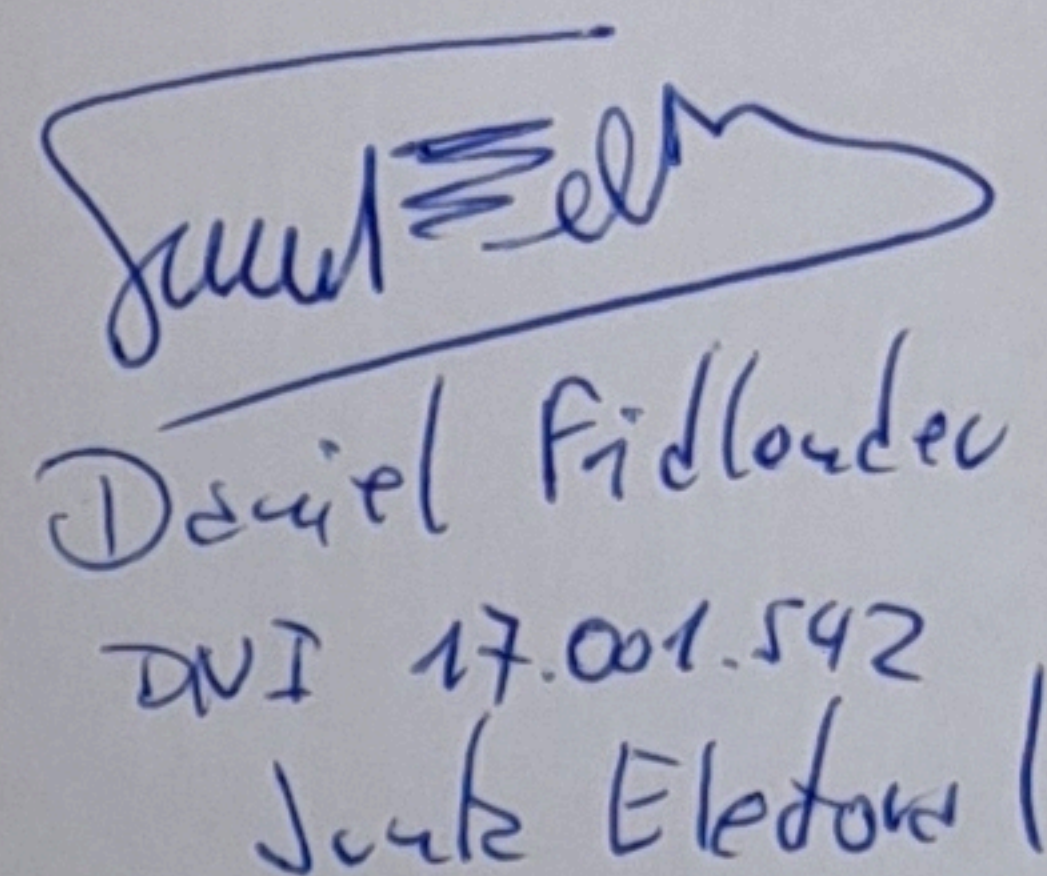 Daniel Fidlander
DNI 17.001.542
Junta Electoral